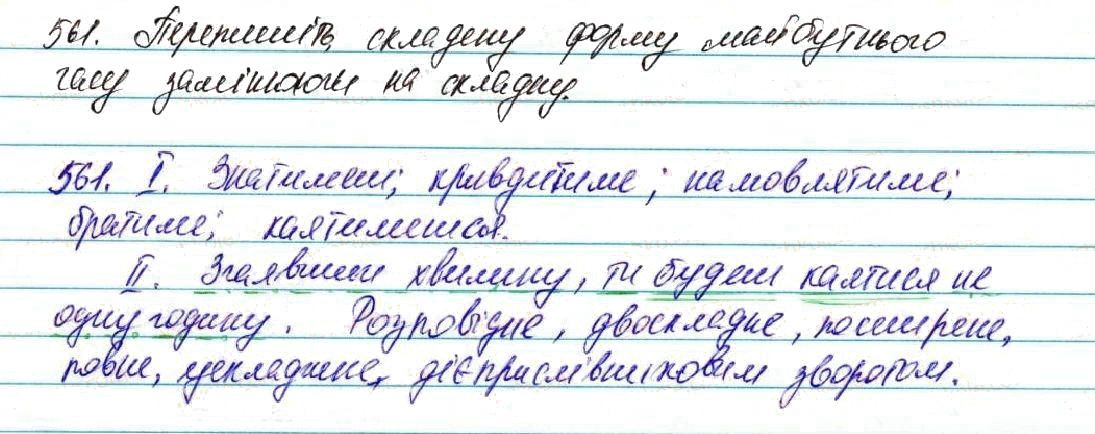 561. Перепишіть, складену форму майбутнього
часу замінюючи на складну.
561. І. Знатимеш; кривдитиме; намовлятиме;
братиме; каятимешся.
ІІ. Згаявши хвилину, ти будеш каятися не
одну годину. Розповідне, двоскладне, поширене,
повне, ускладнене, дієприслівниковим зворотом.